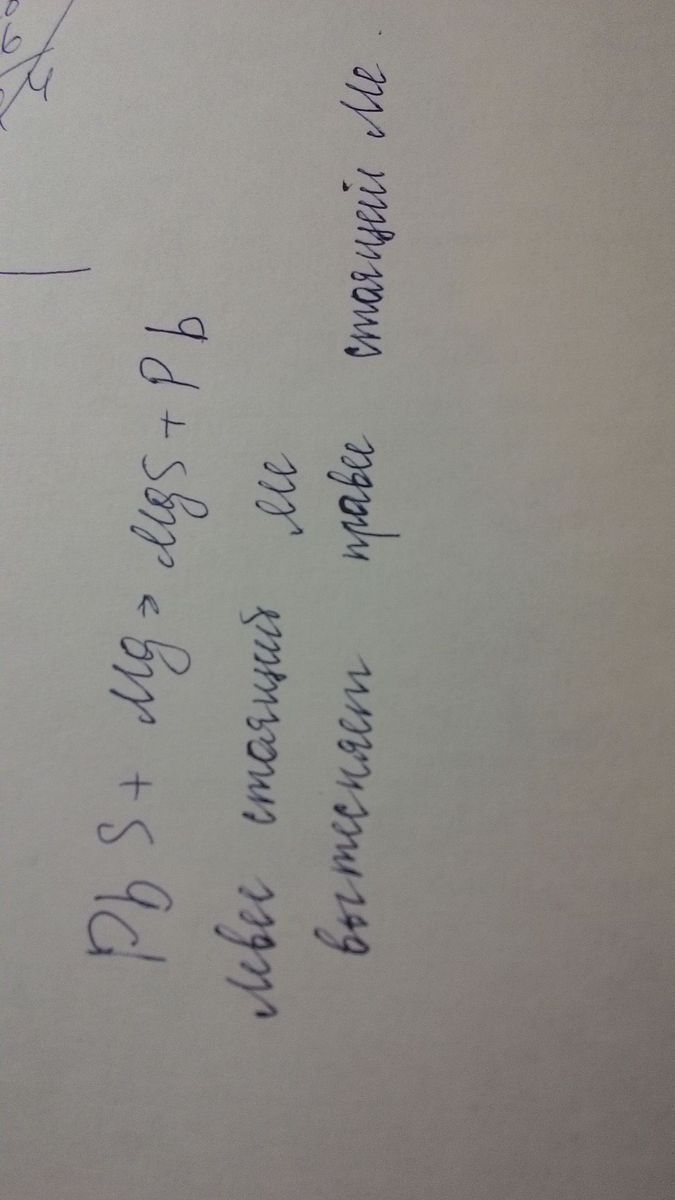 PbS + Mg = MgS + Pb
Левее стоящий Ме
вытесняет правее стоящий Ме.